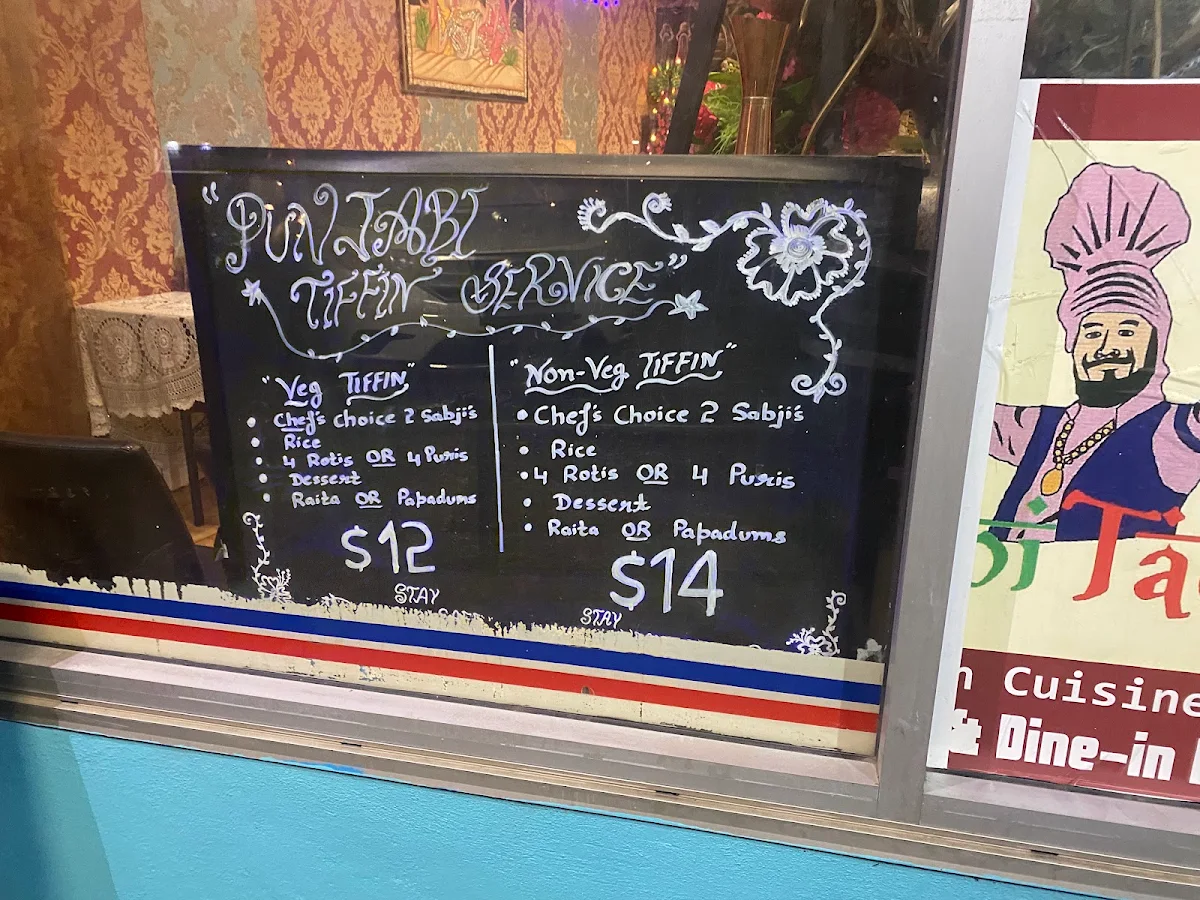 "PUNJABI
TIFFIN SERVICE"
"Veg TIFFIN"
• Chef's Choice 2 Sabji's
• Rice
• 4 Rotis OR 4 Puris
• Dessert
• Raita OR Papadums
$12
STAY
"Non-Veg TIFFIN"
• Chef's Choice 2 Sabji's
• Rice
• 4 Rotis OR 4 Puris
• Dessert
• Raita OR Papadums
$14
STAY
Cuisine
& Dine-in